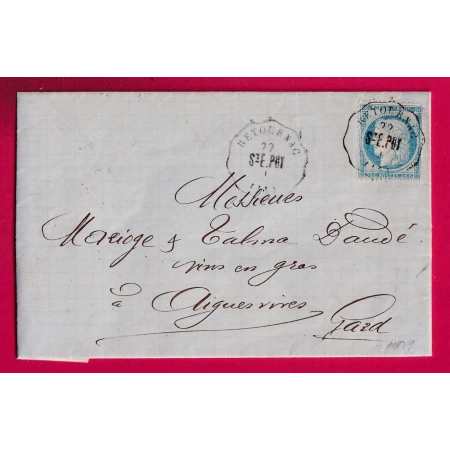 RETOURNAC
22
ST E. PUY
RETOURNAC
22
ST E. PUY
Messieurs
& Talma Daudé
vins en gros
à Aiguesvives
Gard